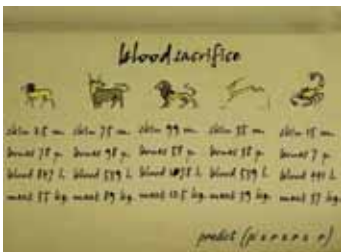 blood sacrifice
skin 25 m. skin 75 m. skin 99 m. skin 55 m. skin 15 m.
bones 78 p. bones 98 p. bones 58 p. bones 38 p. bones 7 p.
blood 847 l. blood 539 l. blood 1078 l. blood 539 l. blood
meat 55 kg. meat 89 kg. meat 125 kg. meat 39 kg. meat 37 kg.
predict